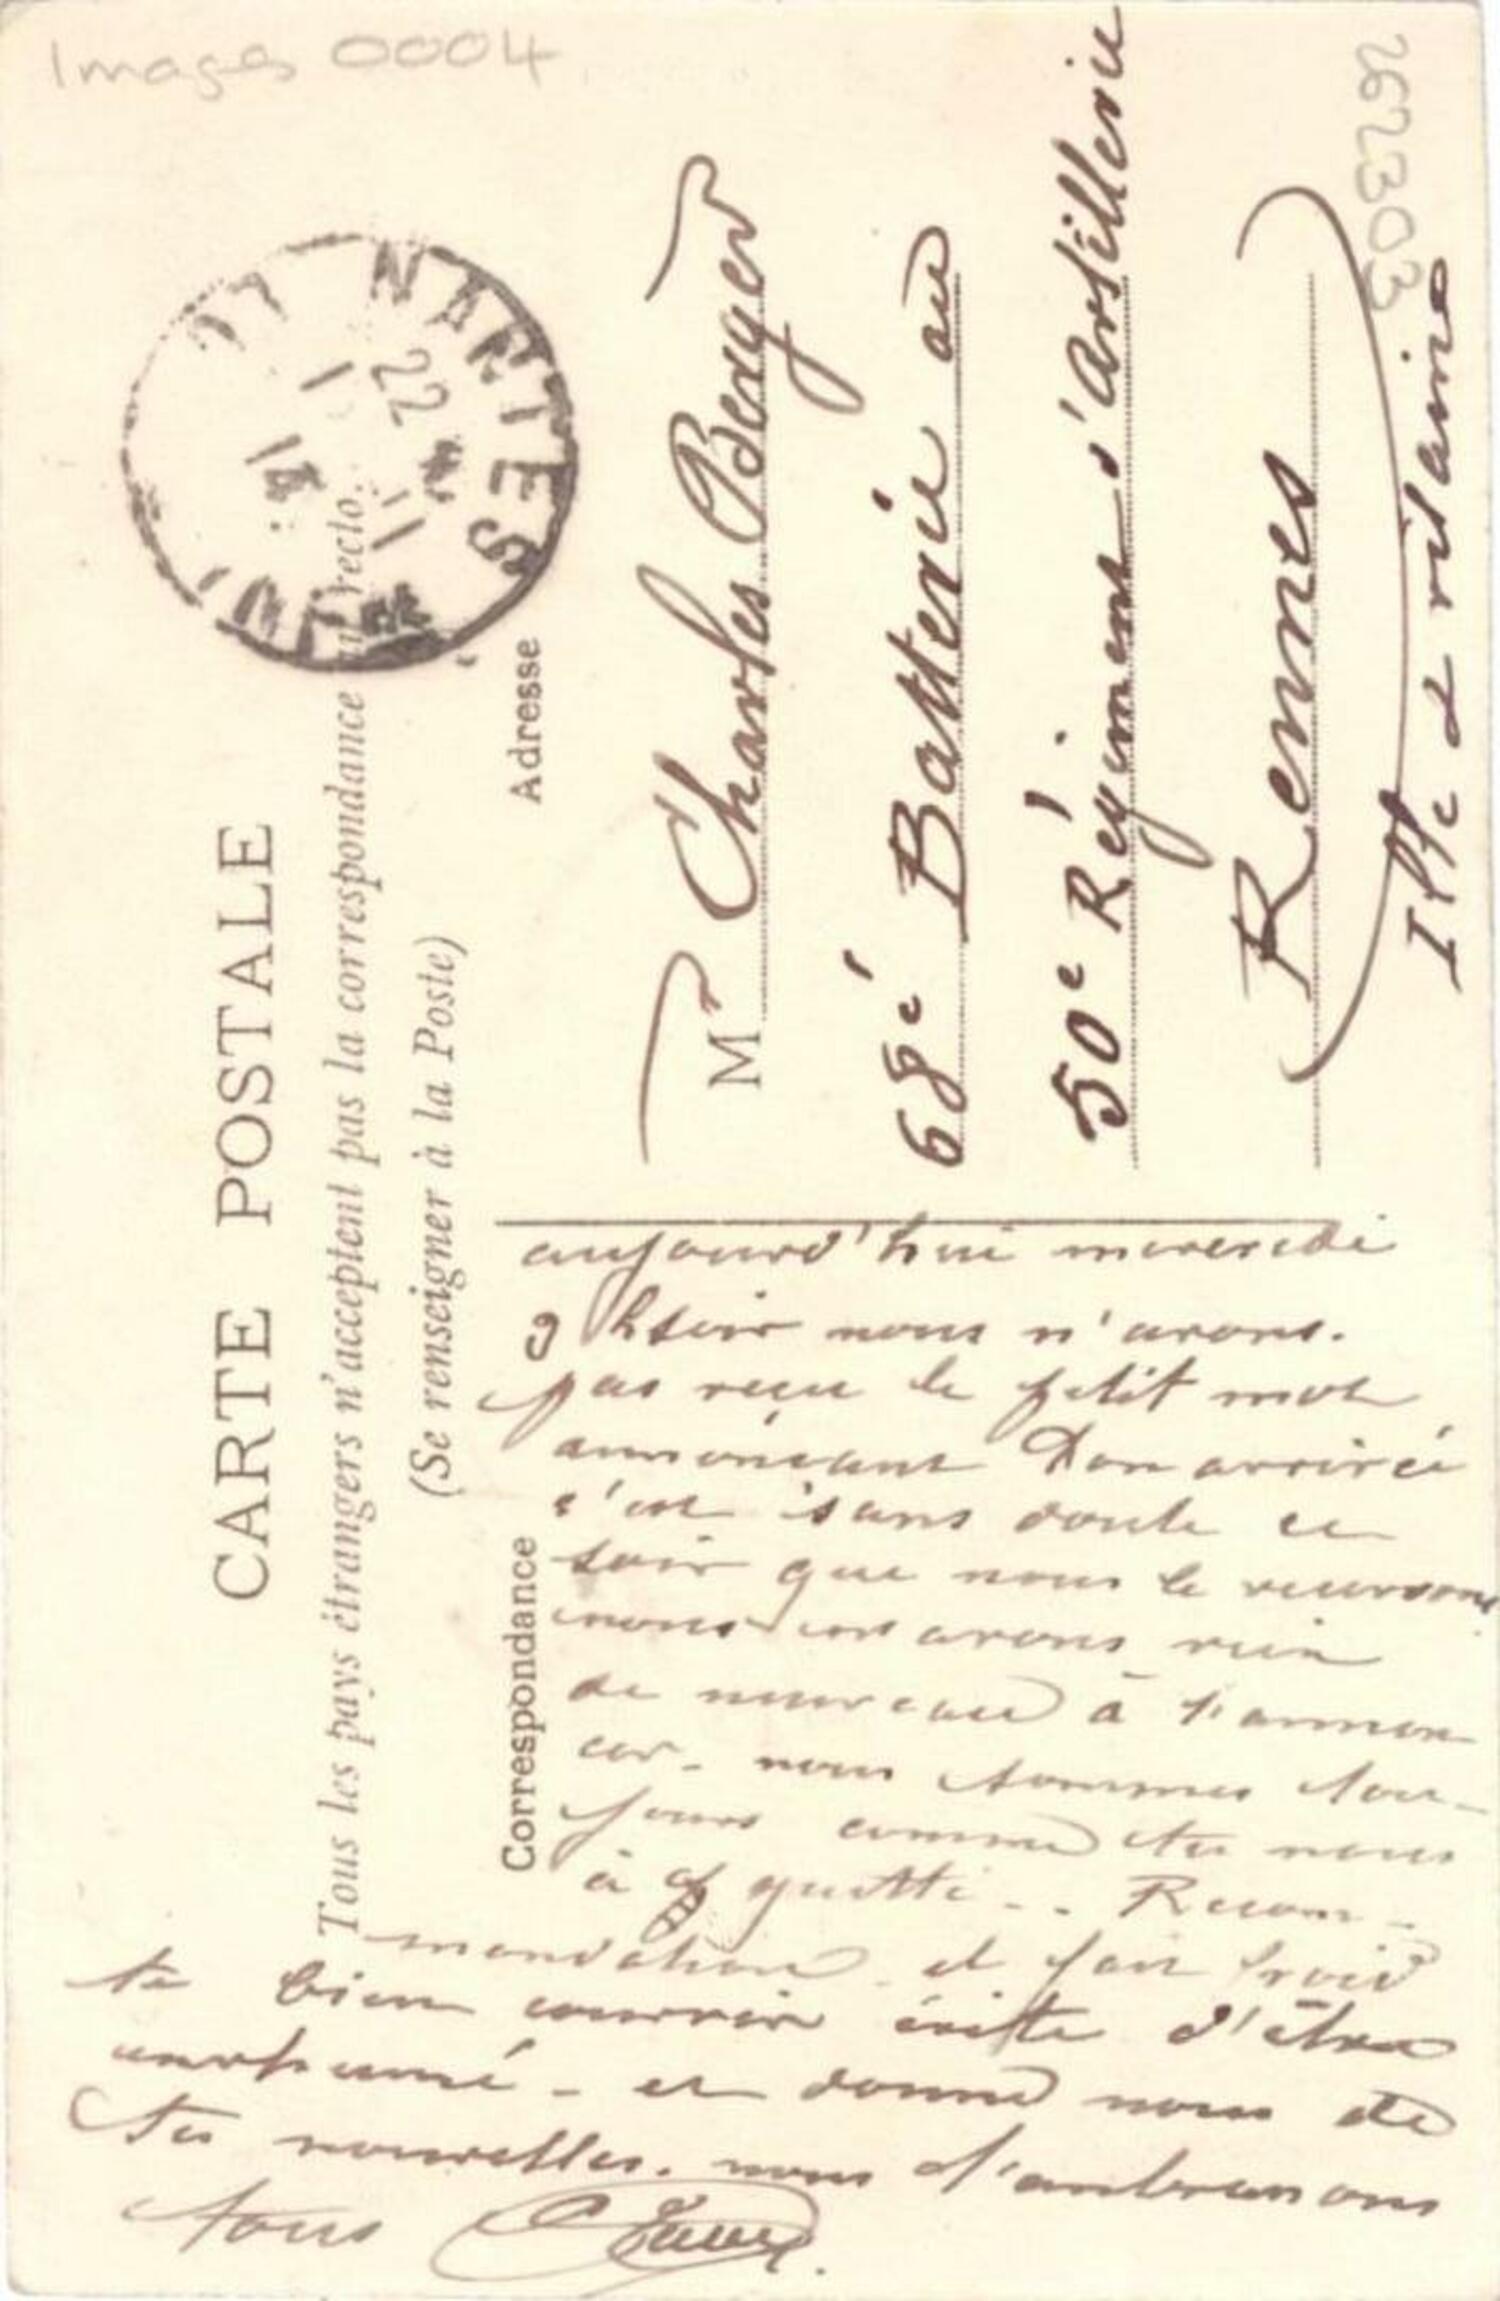 Images 0004
262303
CARTE POSTALE
Tous les pays étrangers n'acceptent pas la correspondance au recto.
(Se renseigner à la Poste)
Correspondance
Adresse
NANTES
22
Mr Charles Berger
68e Batterie au
50e Régiment d'Artillerie
Rennes
Ille & vilaine
aujourd'hui mercredi
9 h soir nous n'avons
pas reçu le petit mot
annonçant Ton arrivée
c'est sans doute ce
soir que nous le recevrons
nous avons rien
de nouveau à t'annon
cer. nous sommes tou-
jours comme tu nous
à quitté .. Recom-
mandation il fait froid
te bien couvrir évite d'être
enrhumé - et donne nous de
tes nouvelles. nous t'embrassons
tous